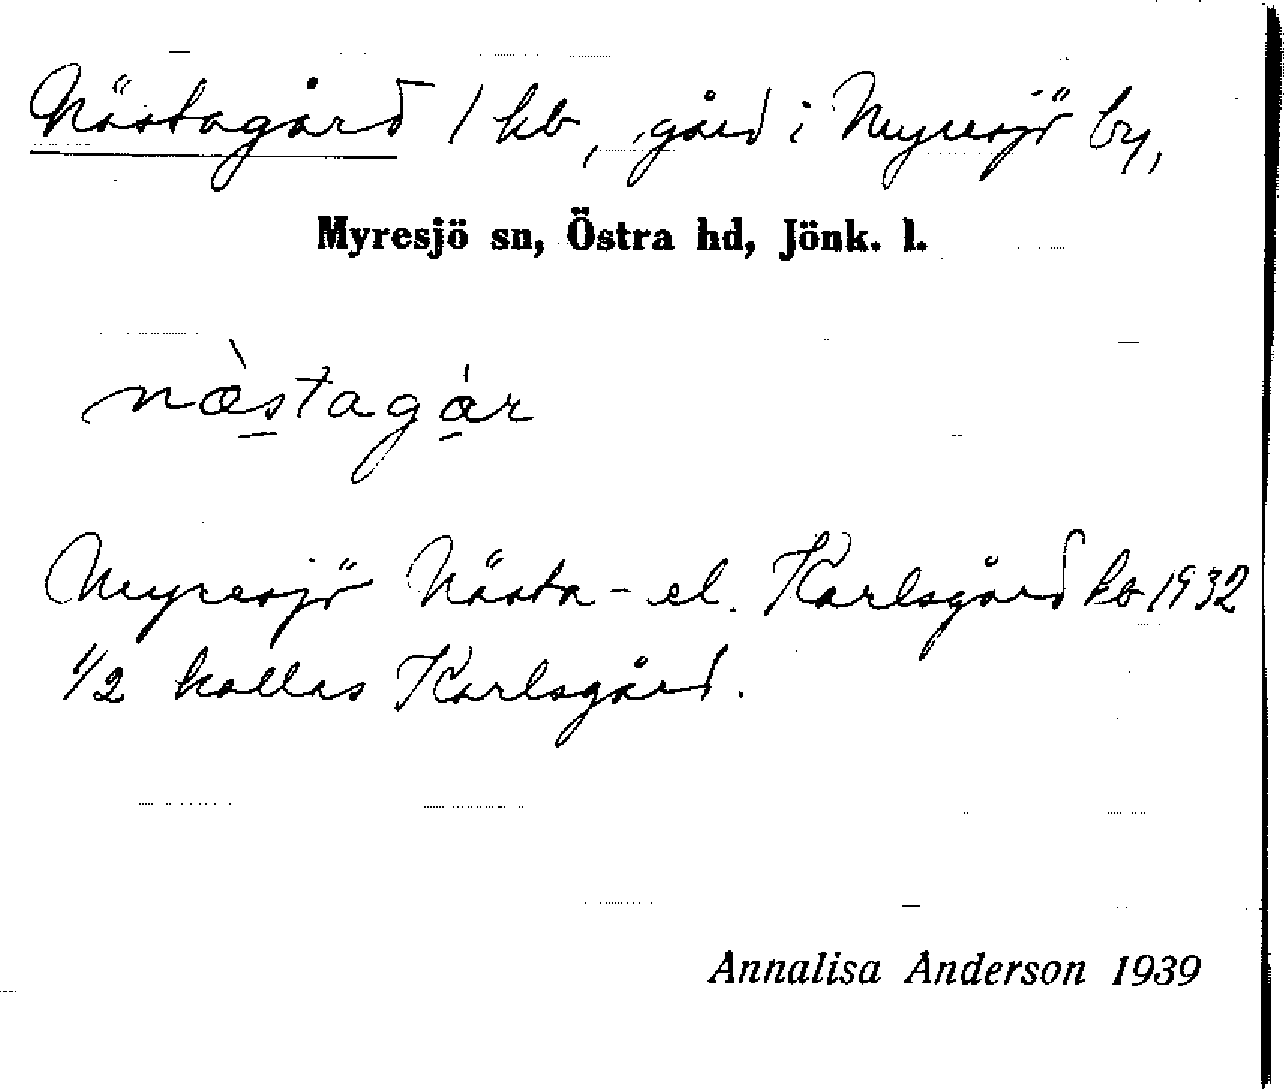 Nästagård / kb, gård i Myresjö by,
Myresjö sn, Östra hd, Jönk. l.
næ̀stagár
Myresjö Nästa- el. Karlsgård kb 1932
1/2 kallas Karlsgård.
Annalisa Anderson 1939